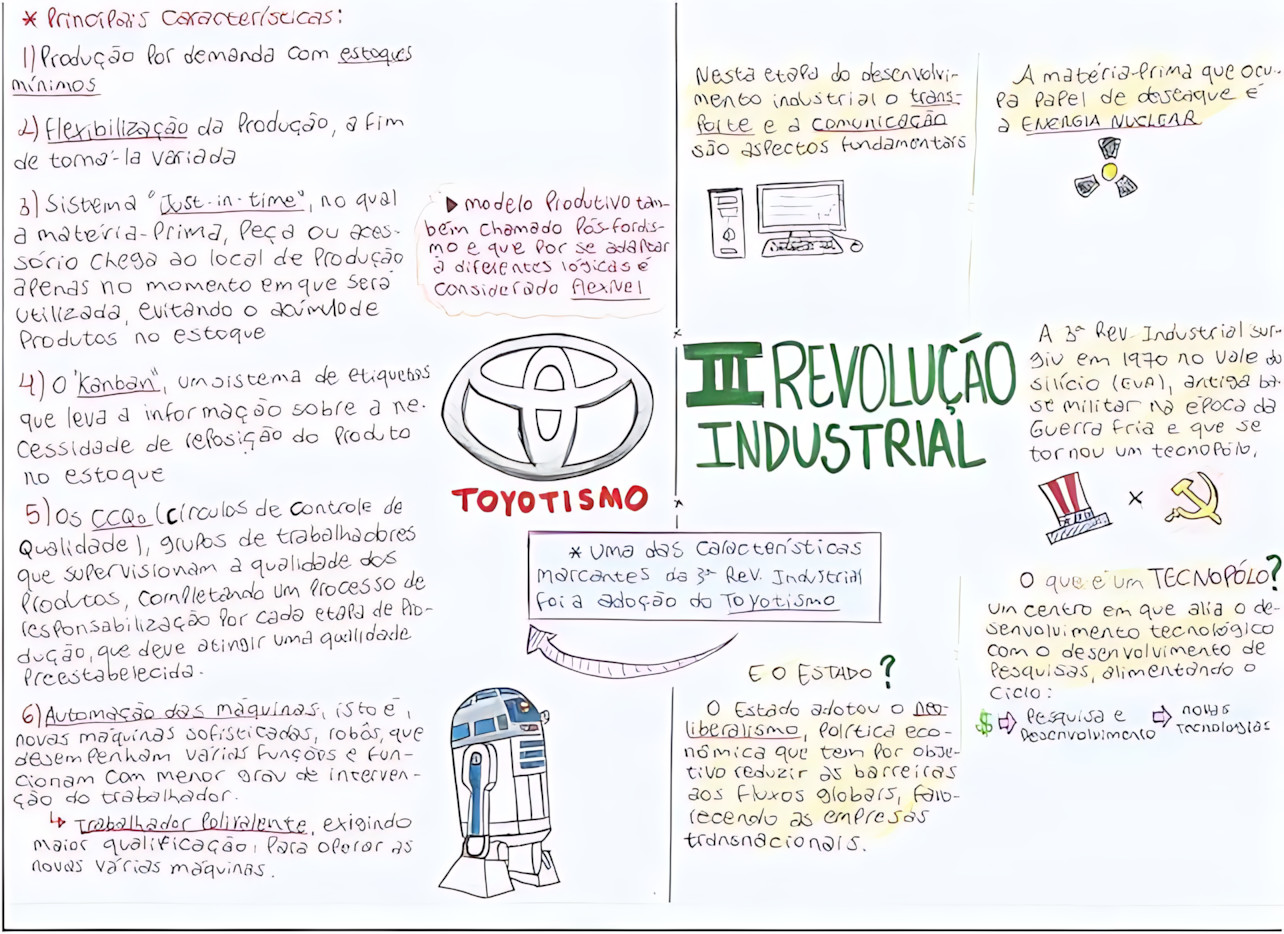 * Principais Características:
1) Produção por demanda com estoques
mínimos
2) Flexibilização da Produção, a fim
de torná-la variada
3) Sistema "Just-in-time", no qual
a matéria-prima, peça ou aces-
sório chega ao local de produção
apenas no momento em que será
utilizada, evitando o acúmulo de
produtos no estoque
4) O "Kanban", um sistema de etiquetas
que leva a informação sobre a ne-
cessidade de reposição do produto
no estoque
5) Os CCQs (círculos de controle de
Qualidade), grupos de trabalhadores
que supervisionam a qualidade dos
produtos, completando um processo de
responsabilização por cada etapa de pro-
dução, que deve atingir uma qualidade
preestabelecida.
6) Automação das máquinas, isto é,
novas máquinas sofisticadas, robôs, que
desempenham várias funções e fun-
cionam com menor grau de interven-
ção do trabalhador.
↳ Trabalhador Polivalente, exigindo
maior qualificação, para operar as
novas várias máquinas.
▶ modelo produtivo tam-
bém chamado Pós-fordis-
mo e que por se adaptar
à diferentes lógicas é
considerado flexível
TOYOTISMO
III REVOLUÇÃO
INDUSTRIAL
* Uma das características
marcantes da 3ª Rev. Industrial
foi a adoção do Toyotismo
Nesta etapa do desenvolvi-
mento industrial o trans-
porte e a comunicação
são aspectos fundamentais
A matéria-prima que ocu-
pa papel de destaque é
a ENERGIA NUCLEAR
A 3ª Rev. Industrial sur-
giu em 1970 no Vale do
silício (EUA), antiga ba-
se militar na época da
Guerra Fria e que se
tornou um tecnopólo,
x
O que é um TECNOPÓLO?
um centro em que alia o de-
senvolvimento tecnológico
com o desenvolvimento de
pesquisas, alimentando o
ciclo:
$ ⇨ Pesquisa e ⇨ novas
Desenvolvimento Tecnologias
E O ESTADO?
O Estado adotou o neo-
liberalismo, política eco-
nômica que tem por obje-
tivo reduzir as barreiras
aos fluxos globais, favo-
recendo as empresas
transnacionais.